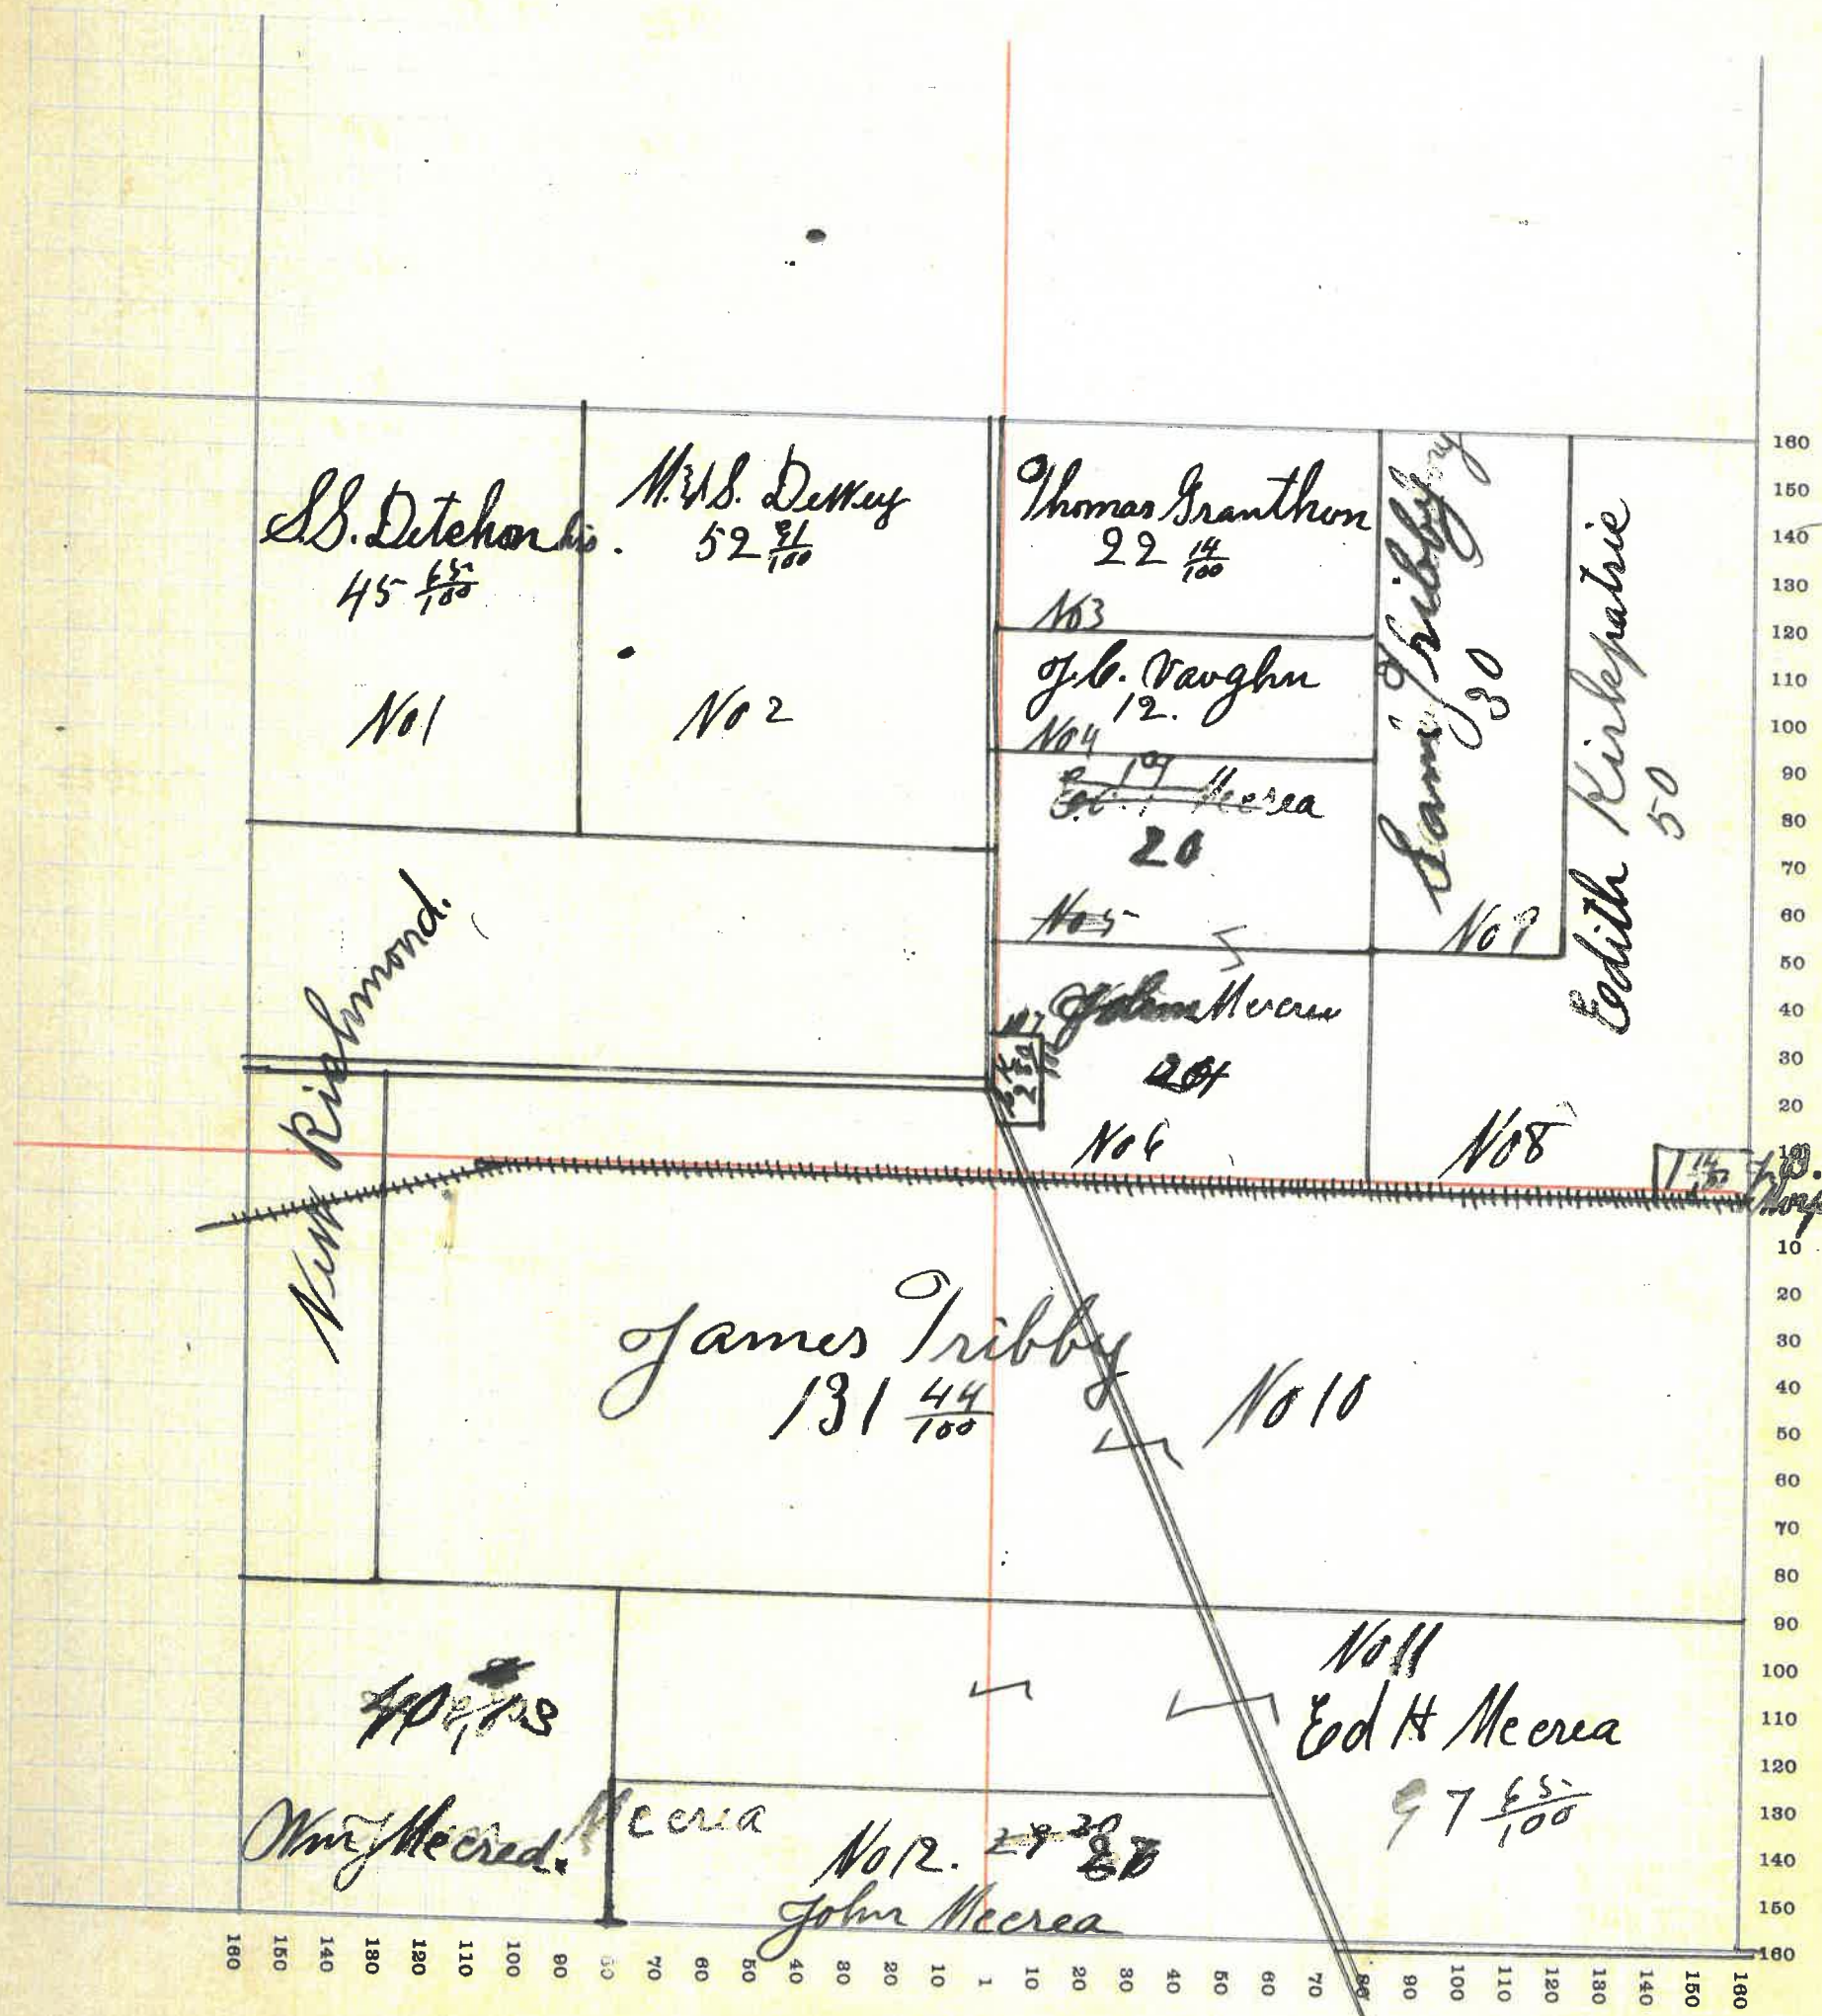 S.S. Detchon
45 65/100
No 1
52 91/100
No 2
Thomas Granthon
22 14/100
No 3
J.C. Vaughn
12.
No 4
Mecrea
20
No 5
John Mecrea
No 6
Sam'l Tribby
30
No 9
Edith Kirkpatric
50
No 8
New Richmond.
James Tribby
131 44/100
No 10
No 11
Ed H Mecrea
97 65/100
Wm J Mecrea.
Mecrea
No 12.
John Mecrea
160
150
140
130
120
110
100
90
80
70
60
50
40
30
20
10
10
20
30
40
50
60
70
80
90
100
110
120
130
140
150
160
160 150 140 130 120 110 100 90 80 70 60 50 40 30 20 10 1 10 20 30 40 50 60 70 80 90 100 110 120 130 140 150 160